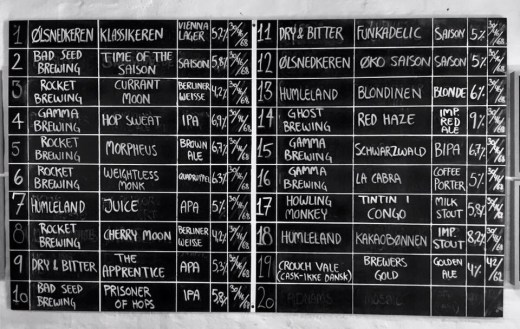 1 ØLSNEDKEREN KLASSIKEREN VIENNA LAGER 5,2%
2 BAD SEED BREWING TIME OF THE SEASON SAISON 5,8%
3 ROCKET BREWING CURRANT MOON BERLINER WEISSE 4,2%
4 GAMMA BREWING HOP SWEAT IPA 6,9%
5 ROCKET BREWING MORPHEUS BROWN ALE 6,7%
6 ROCKET BREWING WEIGHTLESS MONK 6,3%
7 HUMLELAND JUICE APA 5%
8 ROCKET BREWING CHERRY MOON BERLINER WEISSE 4,2%
9 DRY & BITTER THE APPRENTICE APA 5,3%
10 BAD SEED BREWING PRISONER OF HOPS IPA 5,8%
11 DRY & BITTER FUNKADELIC SAISON 5%
12 ØLSNEDKEREN ØKO SAISON SAISON 5%
13 HUMLELAND BLONDINEN BLONDE 6%
14 GHOST BREWING RED HAZE IMP. RED ALE 9%
15 GAMMA BREWING SCHWARZWALD BIPA 6,7%
16 GAMMA BREWING LA CABRA COFFEE PORTER 5%
17 HOWLING MONKEY TINTIN I CONGO MILK STOUT 5,8%
18 HUMLELAND KAKAOBØNNEN IMP. STOUT 8,2%
19 CROUCH VALE (CASK-IKKE DANSK) BREWERS GOLD GOLDEN ALE 4% 42/62
20